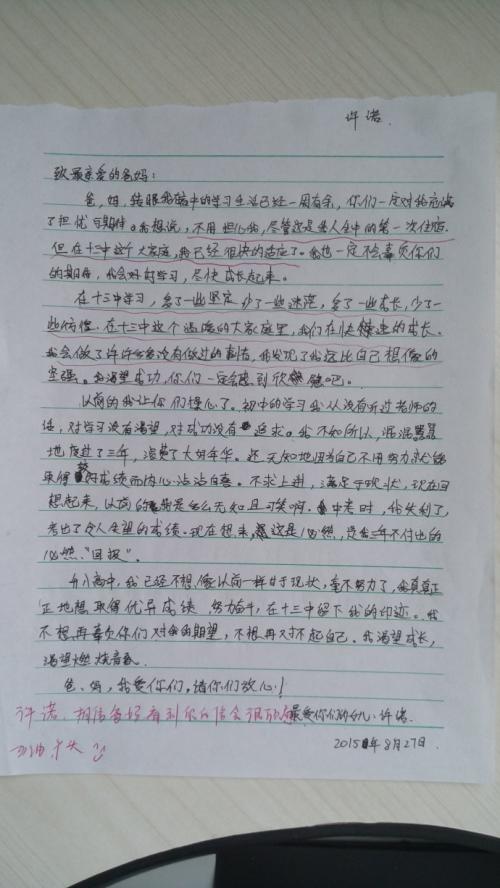 许诺.
致最亲爱的爸妈：
爸，妈，转眼我高中的学习生活已经一周有余，你们一定对我充满
了担忧与期待。我想说，不用担心我，尽管这是我人生中的第一次住宿
但在十三中这个大家庭，我已经很快的适应了。我也一定不会辜负你们
的期待，我会好好学习，尽快成长起来。
在十三中学习，多了一些坚定少了一些迷茫，多了一些成长，少了一
些依偎。在十三中这个温暖的大家庭里，我们在快速的成长。
我会做了许许多多没有做过的事情，我发现了我远比自己想像的
坚强。我渴望成功，你们一定会感到欣慰吧。
以前的我让你们操心了。初中的学习我从没有听过老师的
话，对学习没有渴望，对成功没有追求。我不知所以，混混噩噩
地度过了三年，浪费了大好年华。还无知地因为自己不用努力就能
取得的成绩而内心沾沾自喜。不求上进，满足于现状，现在回
想起来，以前的我是多么无知且可笑啊。中考时，我失利了，
考出了令人失望的成绩。现在想来，这是必然，是我三年不付出的
必然"回报"。
升入高中，我已经不想像以前一样甘于现状，毫不努力了，我真真正
正地想取得优异成绩，努力奋斗，在十三中留下我的印迹。我
不想再辜负你们对我的期望，不想再对不起自己。我渴望成长，
渴望燃烧青春。
爸、妈，我爱你们，请你们放心！
许诺，相信爸妈看到你的信会很欣慰
最爱你们的女儿：许诺.
加油
2015年8月27日.